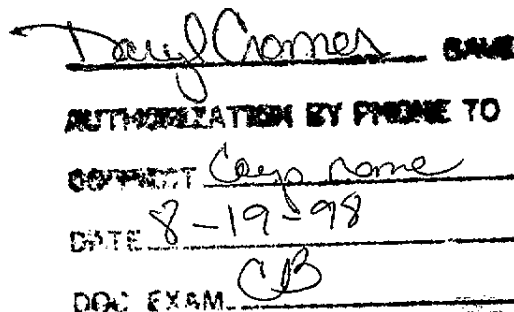 Daryl Cromer GAVE
AUTHORIZATION BY PHONE TO
CORRECT Corp name
DATE 8-19-98
DOC EXAM. CB